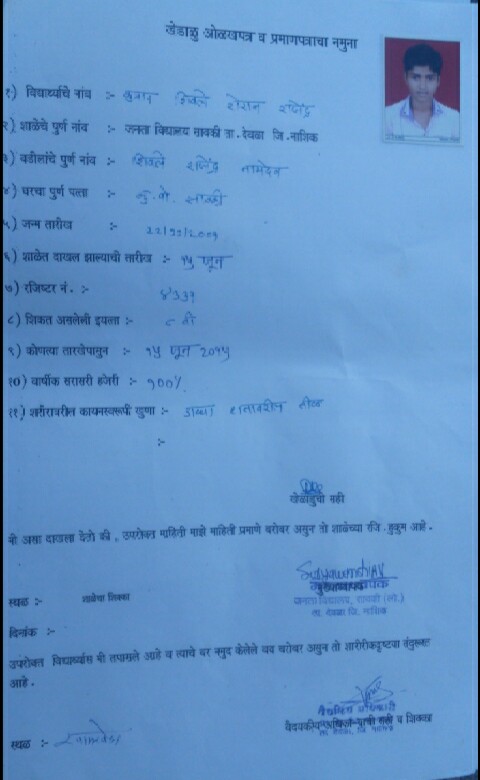 खेडाळु ओळखपत्र व प्रमाणपत्राचा नमुना
१) विद्यार्थ्याचे नांव :- कुमार शिवले रोशन राजेंद्र
२) शाळेचे पुर्ण नांव :- जनता विद्यालय ता. देवळा जि. नाशिक
३) वडीलांचे पुर्ण नांव :- शिवले राजेंद्र नामदेव
४) घरचा पुर्ण पत्ता :- मु. पो.
५) जन्म तारीख :-
६) शाळेत दाखल झाल्याची तारीख :- १५ जून
७) रजिष्टर नं. :- ४३३१
८) शिकत असलेली इयत्ता :- ८ वी
९) कोणत्या तारखेपासुन :- १५ जून २०१५
१०) वार्षीक सरासरी हजेरी :- १००%
११) शरीरावरील कायमस्वरूपी खुणा :- डाव्या हातावरील तीळ
:-
खेळाडुची सही
मी असा दाखला देतो की , उपरोक्त माहिती माझे माहिती प्रमाणे बरोबर असुन तो शाळेच्या रजि .हुकुम आहे .
Suryawanshi AV
मुख्याध्यापक
स्थळ :- शाळेचा शिक्का
जनता विद्यालय,
ता. देवळा जि. नाशिक
दिनांक :-
उपरोक्त विद्यार्थ्यास मी तपासले आहे व त्याचे वर नमुद केलेले वय बरोबर असुन तो शारीरीकदृष्टया तंदुरूस्त
आहे .
वैद्यकीय अधिकारी
वैदयकीय अधिकाऱ्याची सही व शिक्का
ता. देवळा, जि. नाशिक
स्थळ :-